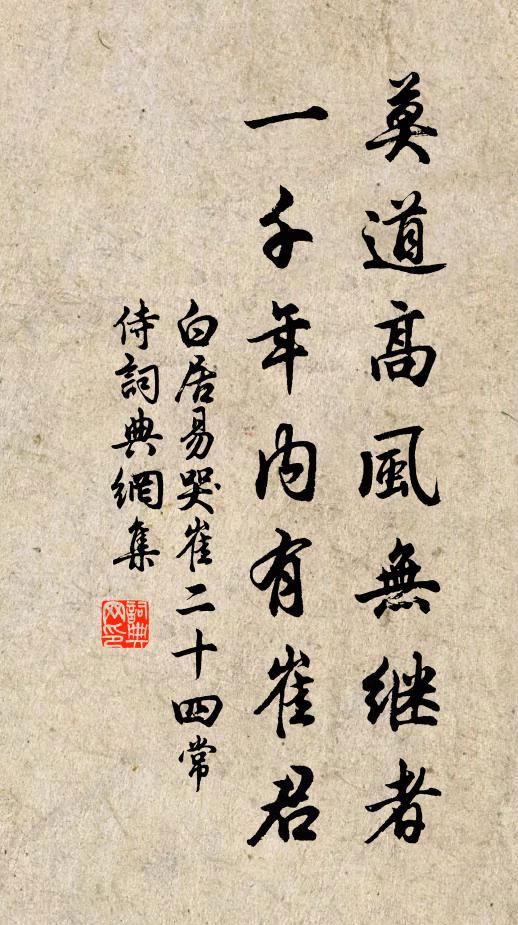 莫道高風無继者
一千年内有崔君
白居易哭崔二十四常
侍詞典網集
詞典网印